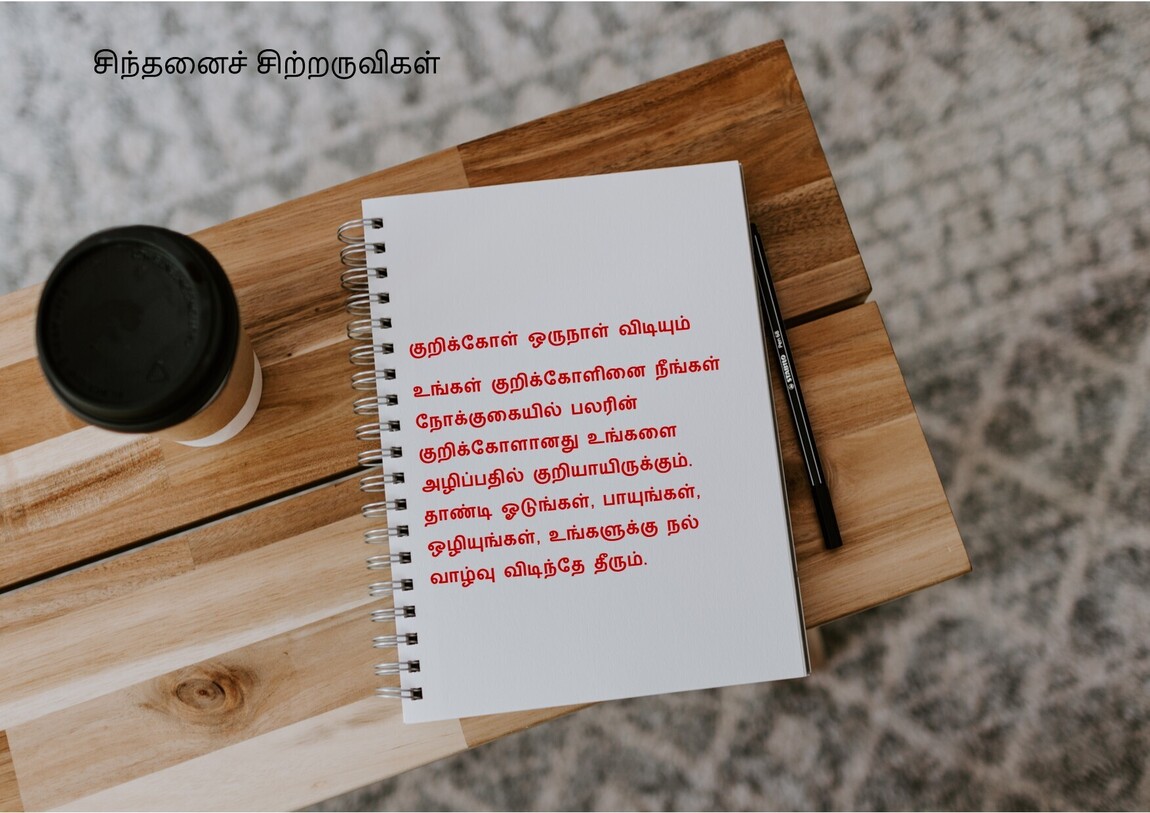 சிந்தனைச் சிற்றருவிகள்
குறிக்கோள் ஒருநாள் விடியும்
உங்கள் குறிக்கோளினை நீங்கள்
நோக்குகையில் பலரின்
குறிக்கோளானது உங்களை
அழிப்பதில் குறியாயிருக்கும்.
தாண்டி ஓடுங்கள், பாயுங்கள்,
ஒழியுங்கள், உங்களுக்கு நல்
வாழ்வு விடிந்தே தீரும்.
STABILO Pen 68